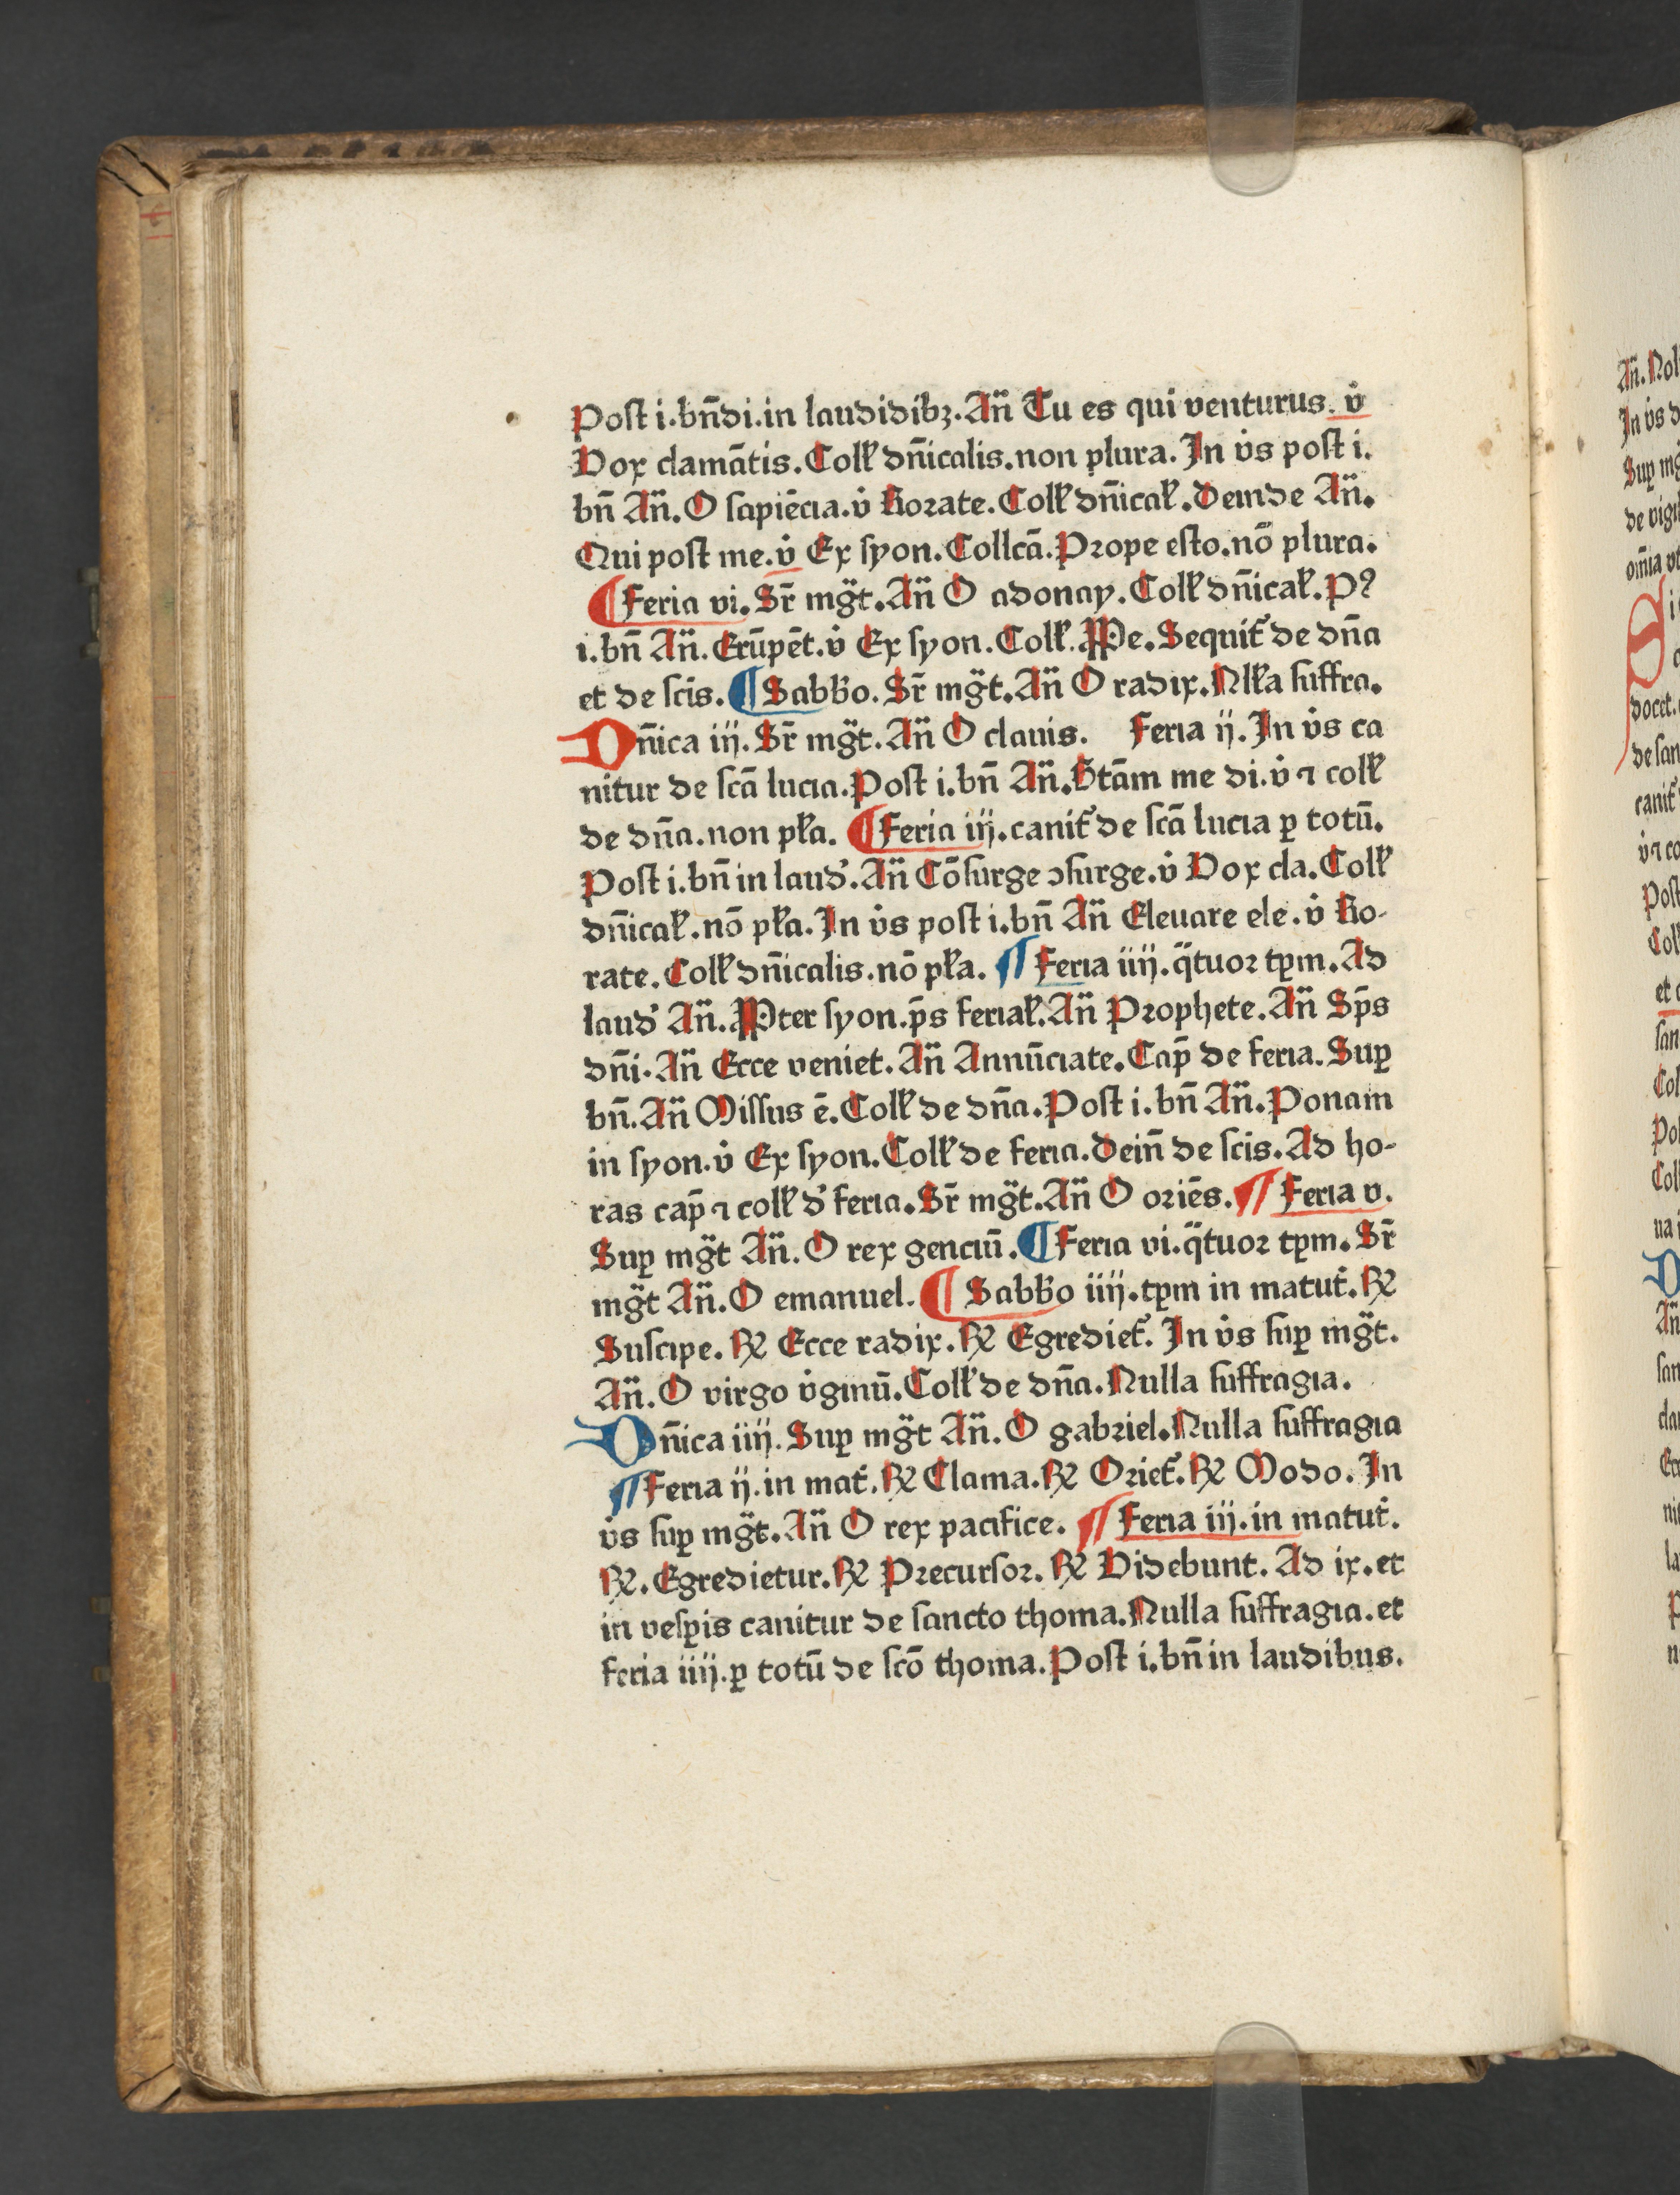 Post i.bn̄di.in laudidibꝫ.An̄ Tu es qui venturus. v̇
Vox clamātis.Coll̛ dn̄icalis.non plura.In v̇s post i.
bn̄ An̄.O sapiēcia.v̇ Rorate.Coll̛ dn̄ical̛.Deinde An̄.
Qui post me.v̇ Ex syon.Collcā.Prope esto.nō plura.
¶Feria vi.Sr̄ mg̈t.An̄ O adonay.Coll̛ dn̄ical̛.Pꝰ
i.bn̄ An̄.Erūpēt.v̇ Ex syon.Coll̛.Pe.Sequit̛ de dn̄a
et de scīs.¶Sabbo.Sr̄ mg̈t.An̄ O radix.Nll̛a suffra.
Dn̄ica iij.Sr̄ mg̈t.An̄ O clauis. Feria ij.In v̇s ca
nitur de scā lucia.Post i.bn̄ An̄.Btām me di.v̇ ⁊ coll̛
de dn̄a.non pl̛a. ¶Feria iij.canit̛ de scā lucia ꝑ totū.
Post i.bn̄ in laud̛.An̄ Cōsurge ↄsurge.v̇ Vox cla.Coll̛
dn̄ical̛.nō pl̛a.In v̇s post i.bn̄ An̄ Eleuare ele.v̇ Ro-
rate.Coll̛ dn̄icalis.nō pl̛a. ¶Feria iiij.q̈tuor tꝑm.Ad
laud̛ An̄.Pter syon.p̄s ferial̛.An̄ Prophete.An̄ Sp̄s
dn̄i.An̄ Ecce veniet.An̄ Annūciate.Cap̄ de feria.Suꝑ
bn̄.An̄ Missus ē.Coll̛ de dn̄a.Post i.bn̄ An̄.Ponam
in syon.v̇ Ex syon.Coll̛ de feria.Dein̄ de scīs.Ad ho-
ras cap̄ ⁊ coll̛ d̛ feria.Sr̄ mg̈t.An̄ O oriēs.¶Feria v.
Suꝑ mg̈t An̄.O rex genciū.¶Feria vi.q̈tuor tꝑm.Sr̄
mg̈t An̄.O emanuel.¶Sabbo iiij.tꝑm in matut̛.℞
Suscipe.℞ Ecce radix.℞ Egrediet̛.In v̇s suꝑ mg̈t.
An̄.O virgo v̇ginū.Coll̛ de dn̄a.Nulla suffragia.
Dn̄ica iiij.Suꝑ mg̈t An̄.O gabriel.Nulla suffragia
¶Feria ij.in mat̛.℞ Clama.℞ Oriet̛.℞ Modo.In
v̇s suꝑ mg̈t.An̄ O rex pacifice. ¶Feria iij.in matut̛.
℞.Egredietur.℞ Precursor.℞ Videbunt.Ad ix.et
in vesꝑis canitur de sancto thoma.Nulla suffragia.et
feria iiij.ꝑ totū de scō thoma.Post i.bn̄ in laudibus.